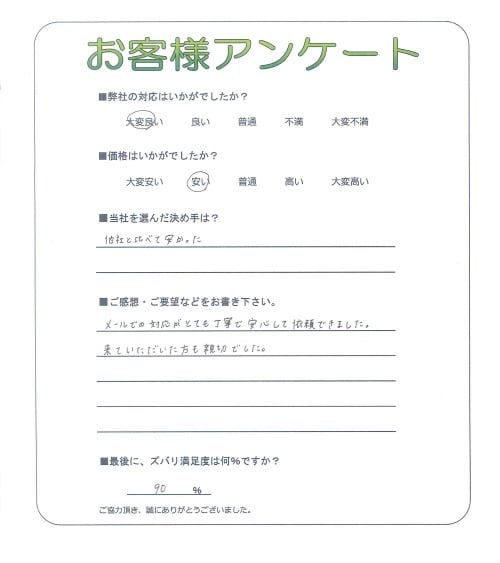 お客様アンケート
■弊社の対応はいかがでしたか？
大変良い 良い 普通 不満 大変不満
■価格はいかがでしたか？
大変安い 安い 普通 高い 大変高い
■当社を選んだ決め手は？
他社と比べて安かった
■ご感想・ご要望などをお書き下さい。
メールでの対応がとても丁寧で安心して依頼できました。
来ていただいた方も親切でした。
■最後に、ズバリ満足度は何%ですか？
90 %
ご協力頂き、誠にありがとうございました。